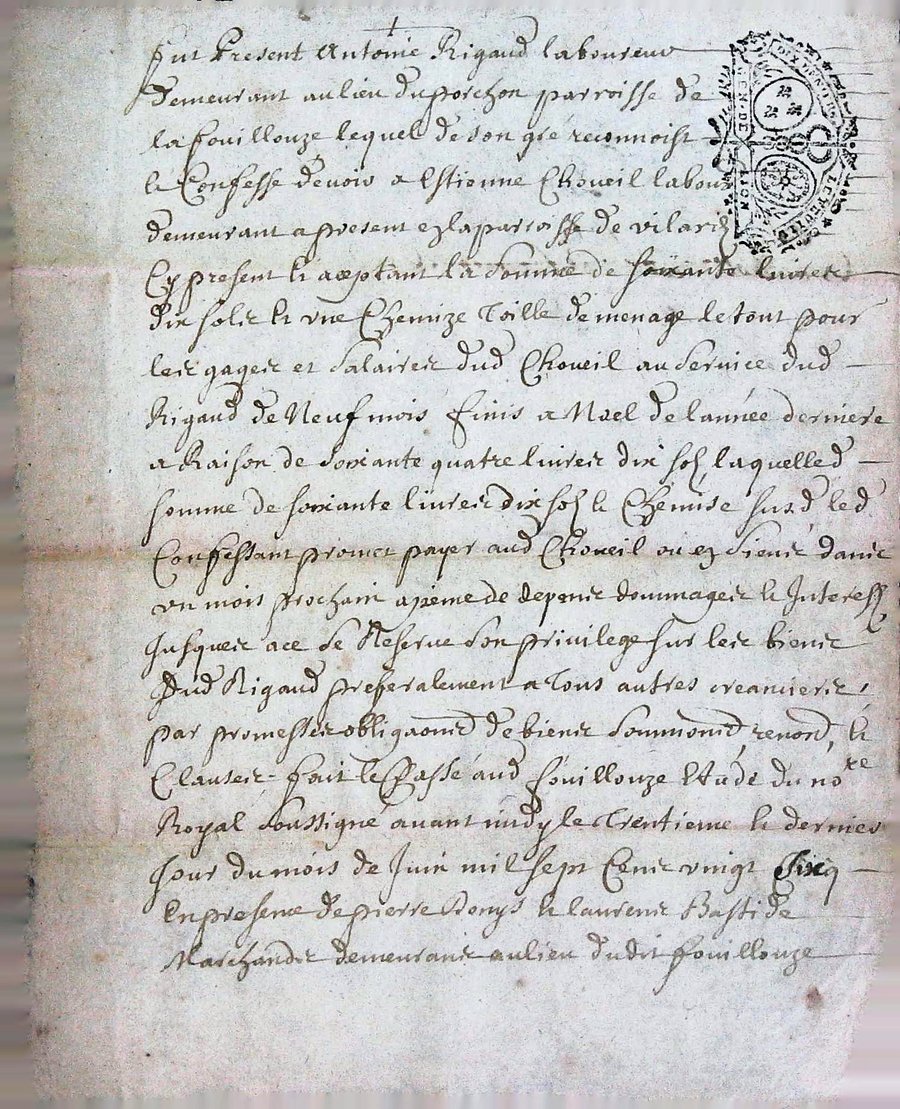 fut Present Antoinie Rigaud laboureur
demeurant au lieu du porchon parroisse de
la fouillouze lequel de son gré reconnoist
Et Confesse devoir a Estienne Choveil labour
demeurant a present en la parroisse de vilard
Cy present Et aceptant la Somme de soixante livres
dix solz Et une Chemize Toille de menage le tout pour
les gages et Salaires dud Choveil au Service dud
Rigaud de Neuf mois finis a Noel de l'année derniere
a Raison de Soixante quatre livres dix solz laquelled
somme de soixante livres dix solz Et Chemise susd led
Confessant promet payer aud Choveil ou ez Siens dans
un mois prochain a peine de depens dommages Et Interestz
Jusques a ce Se Reserve Son privilege sur les biens
Dud Rigaud preferalement a Tous autres creanciers,
par promesses obligaons de biens Soumiond, renond, Et
Clauses fait Et Passé aud fouillouze Etude du nore
Royal Soussigné avant midy le Trentieme Et dernier
Jour du mois de Juin mil sept Cens vingt Cinq
En presence de pierre Donys Et laurens Bastide
Marchands demeurans au lieu dudit fouillouze
GEN. DE LION
DIX DEN.